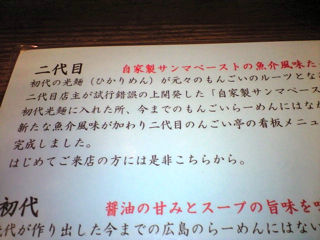 二代目 自家製サンマペーストの魚介風味た
初代の光麺(ひかりめん)が元々のもんごいのルーツとな
二代目店主が試行錯誤の上開発した「自家製サンマペース
初代光麺に入れた所、今までのもんごいらーめんにはなか
新たな魚介風味が加わり二代目のんごい亭の看板メニュ
完成しました。
はじめてご来店の方には是非こちらから。
初代 醤油の甘みとスープの旨味を
代が作り出した今までの広島のらーめんにはない